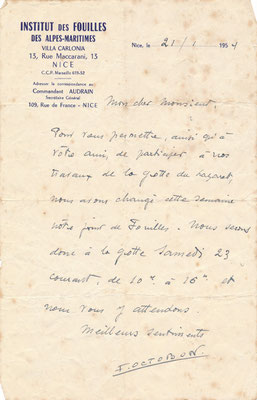 INSTITUT DES FOUILLES
DES ALPES-MARITIMES
VILLA CARLONIA
15, Rue Maccarani, 15
NICE
C.C.P. Marseille 678-52
Adresser la correspondance au :
Commandant AUDRAIN
Secrétaire Général
109, Rue de France - NICE
Nice, le 21/1 1954
Mon cher Monsieur,
Pour vous permettre, ainsi qu'à
votre ami, de participer à nos
travaux de la grotte du Lazaret,
nous avons changé cette semaine
notre jour de Fouilles. Nous serons
donc à la grotte Samedi 23
courant, de 10h à 16h et
nous vous y attendons
Meilleurs sentiments
F. OCTOBON